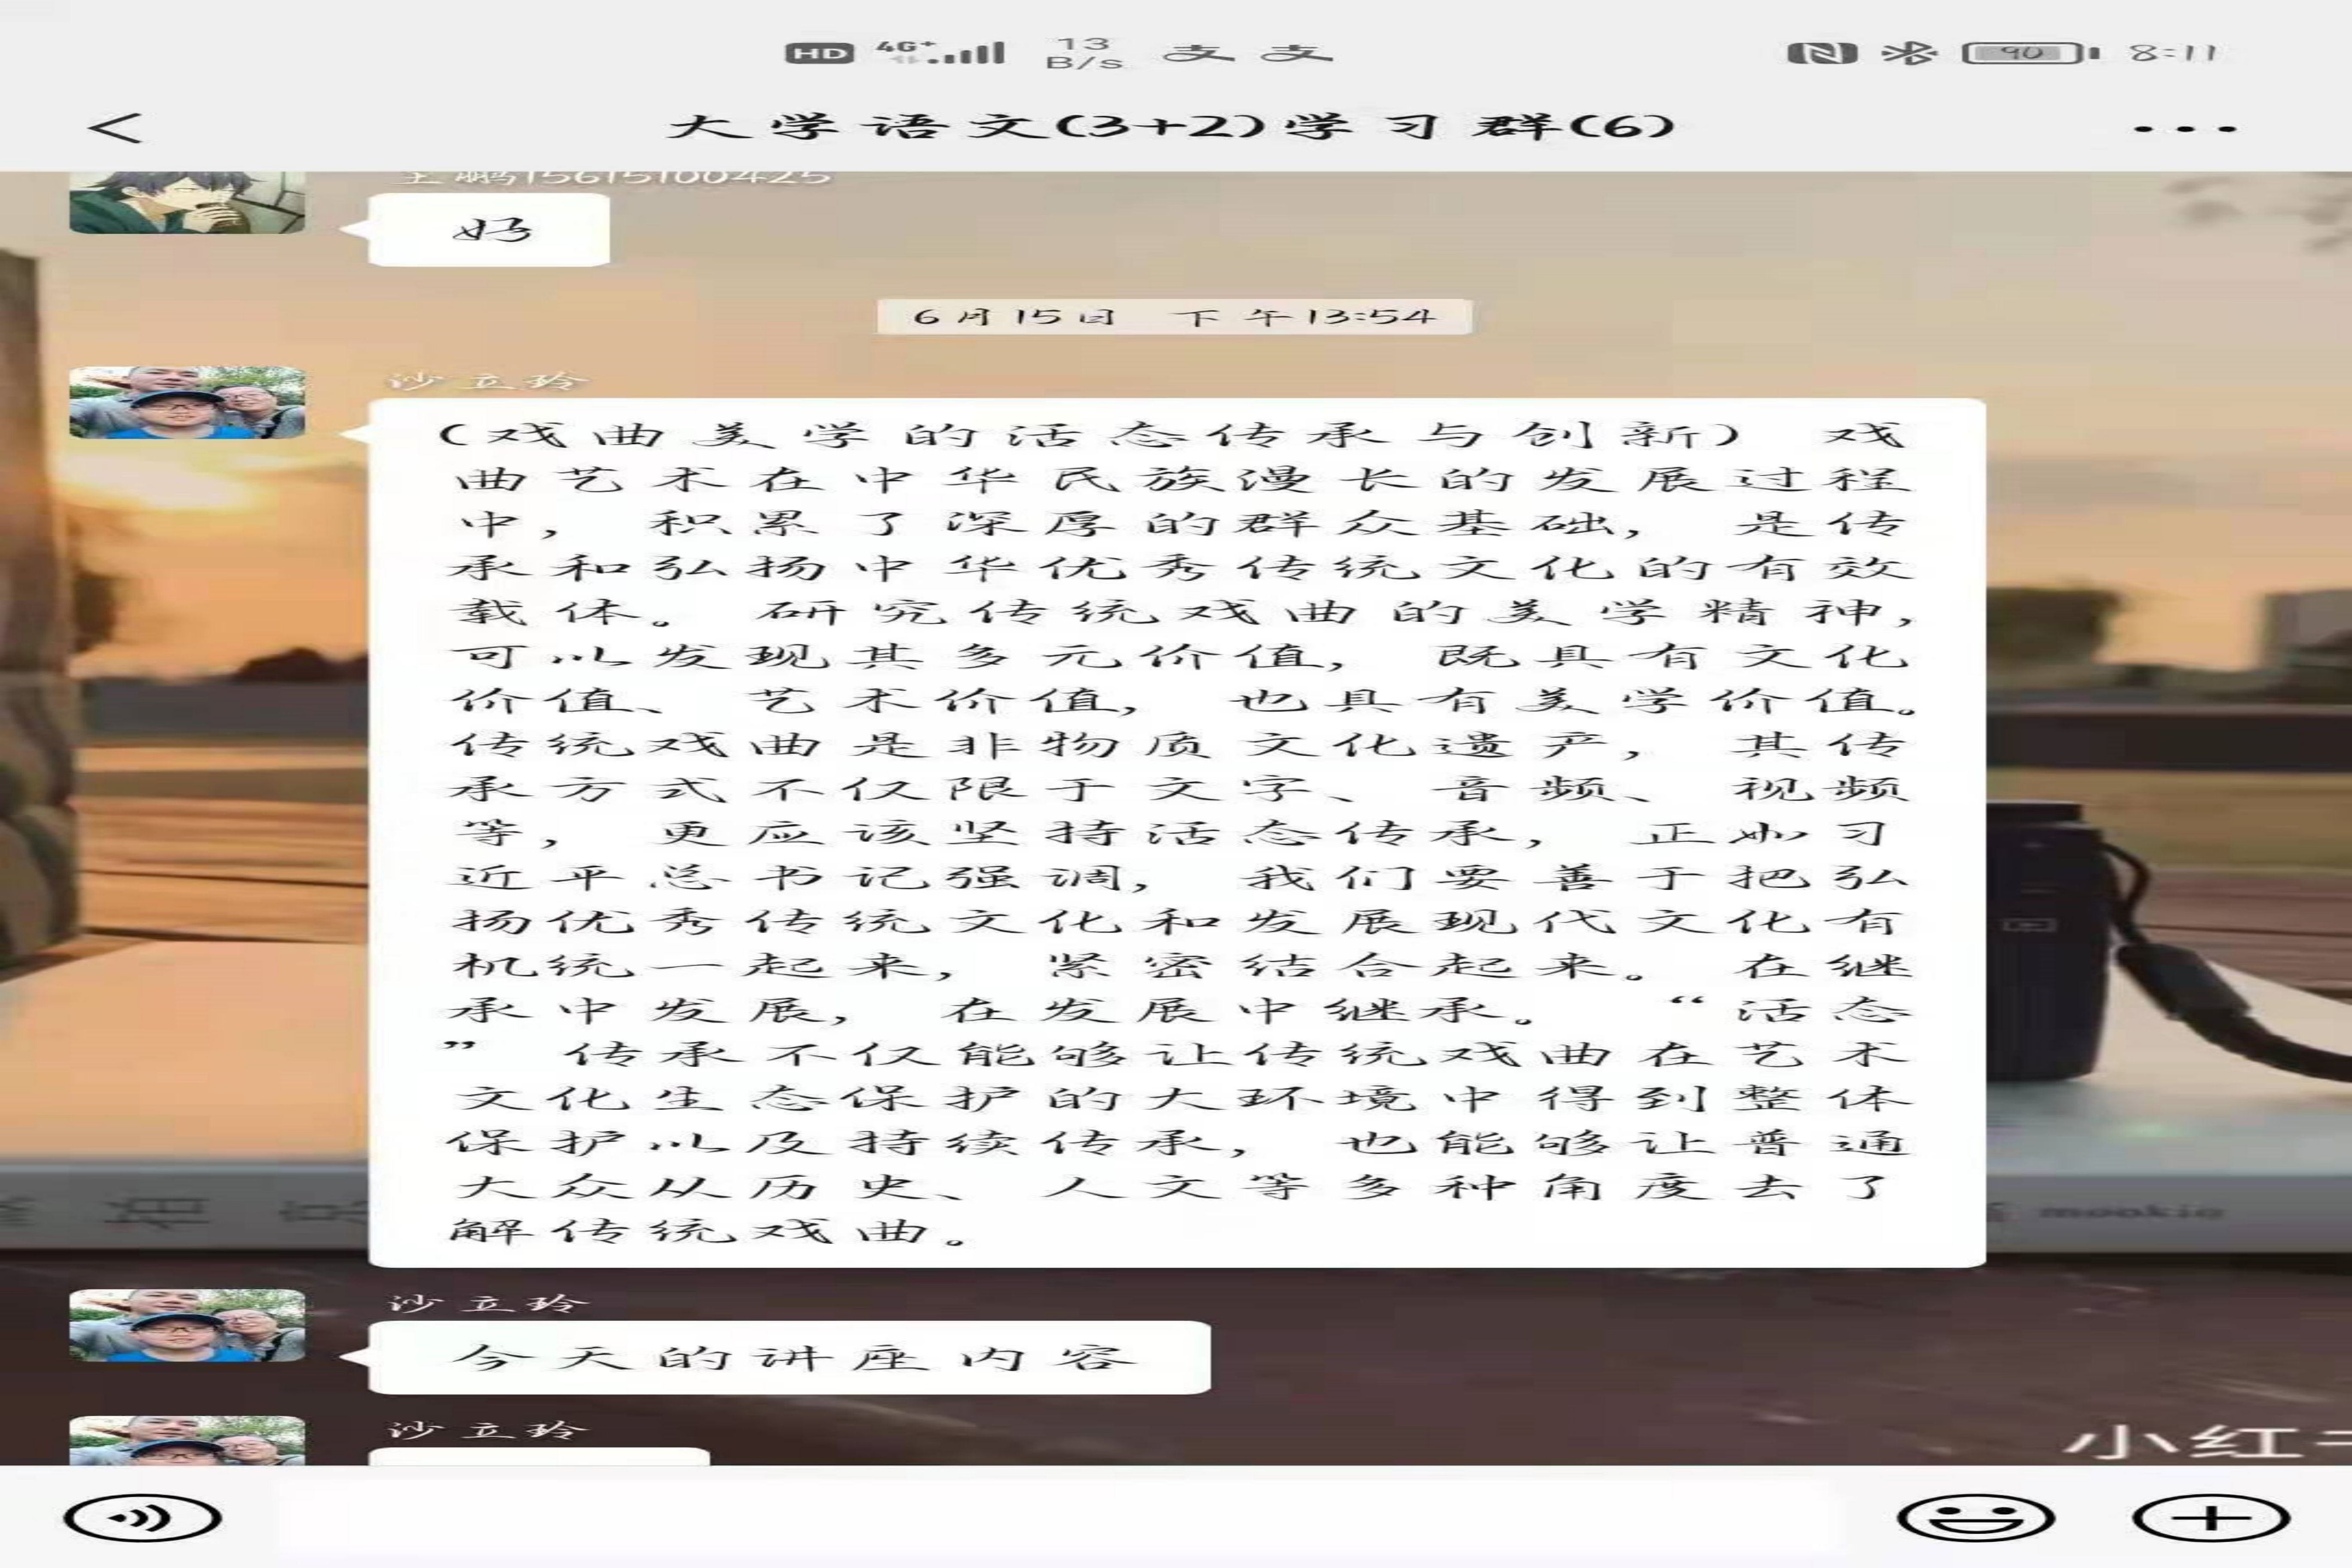 HD 4G+ 13 B/s 支 支 90 8:11
< 大学语文(3+2)学习群(6) ...
王鹏15615100425
好
6月15日 下午13:54
沙立玲
（戏曲美学的活态传承与创新） 戏
曲艺术在中华民族漫长的发展过程
中，积累了深厚的群众基础，是传
承和弘扬中华优秀传统文化的有效
载体。研究传统戏曲的美学精神，
可以发现其多元价值，既具有文化
价值、艺术价值，也具有美学价值。
传统戏曲是非物质文化遗产，其传
承方式不仅限于文字、音频、视频
等，更应该坚持活态传承，正如习
近平总书记强调，我们要善于把弘
扬优秀传统文化和发展现代文化有
机统一起来，紧密结合起来。在继
承中发展，在发展中继承。“活态
”传承不仅能够让传统戏曲在艺术
文化生态保护的大环境中得到整体
保护以及持续传承，也能够让普通
大众从历史、人文等多种角度去了
解传统戏曲。
沙立玲
今天的讲座内容
沙立玲
小红